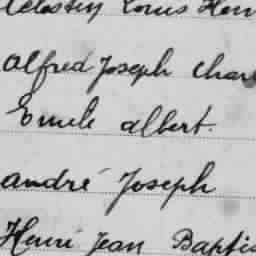 Célestin Louis Hen
Alfred Joseph Char
Emile Albert.
André Joseph
Henri Jean Baptis